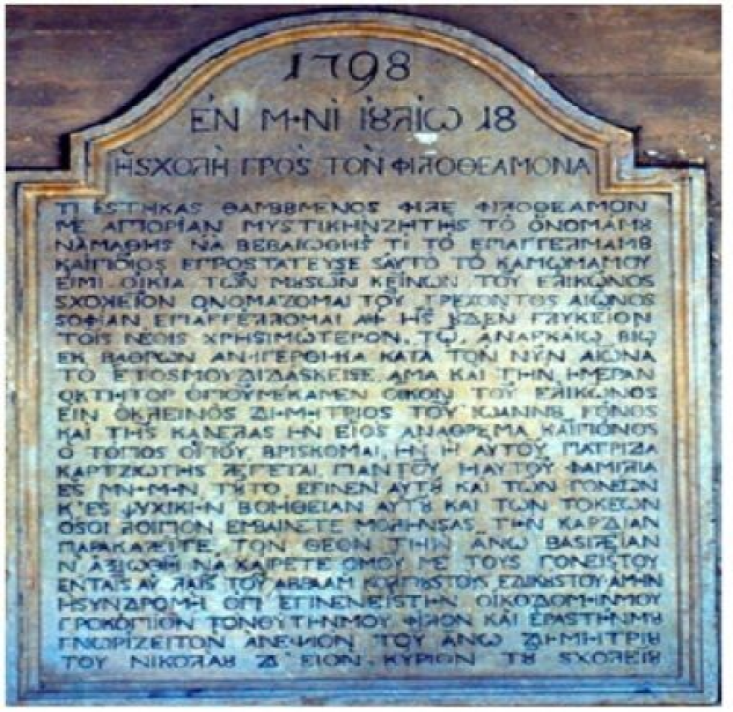 1798
ἘΝ ΜΗΝῚ ἸȢΛΊΩ 18
Ἡ ΣΧΟΛῊ ΠΡῸΣ ΤῸΝ ΦΙΛΟΘΕΑΜΟΝΑ
ΤΙ ΕΣΤΗΚΑΣ ΘΑΜΒȢΜΕΝΟΣ ΦΙΛΕ ΦΙΛΟΘΕΑΜΟΝ
ΜΕ ΑΠΟΡΙΑΝ ΜΥΣΤΙΚΗΝ ΖΗΤΗΣ ΤΟ ΟΝΟΜΑΜȢ
ΝΑ ΜΑΘΗΣ ΝΑ ΒΕΒΑΙΩΘΗΣ ΤΙ ΤΟ ΕΠΑΓΓΕΛΜΑΜȢ
ΚΑΙ ΠΟΙΟΣ ΕΠΡΟΣΤΑΤΕΥΣΕ ΣΑΥΤΟ ΤΟ ΚΑΜΩΜΑΜΟΥ
ΕΙΜΙ ΟΙΚΙΑ ΤΩΝ ΜȢΣΩΝ ΚΕΙΝΩΝ ΤΟΥ ΕΛΙΚΩΝΟΣ
ΣΧΟΛΕΙΟΝ ΟΝΟΜΑΖΟΜΑΙ ΤΟΥ ΤΡΕΧΟΝΤΟΣ ΑΙΩΝΟΣ
ΣΟΦΙΑΝ ΕΠΑΓΓΕΛΛΟΜΑΙ ΑΦ ΗΣ ȢΔΕΝ ΓΛΥΚΕΙΟΝ
ΤΟΙΣ ΝΕΟΙΣ ΧΡΗΣΙΜΩΤΕΡΟΝ ΤΩ ΑΝΑΓΚΑΙΩ ΒΙΩ
ΕΚ ΒΑΘΡΩΝ ΑΝΗΓΕΡΘΗΚΑ ΚΑΤΑ ΤΟΝ ΝΥΝ ΑΙΩΝΑ
ΤΟ ΕΤΟΣ ΜΟΥ ΔΙΔΑΣΚΕΙΣΕ ΑΜΑ ΚΑΙ ΤΗΝ ΗΜΕΡΑΝ
Ο ΚΤΗΤΟΡ ΟΠΟΥ ΜΕΚΑΜΕΝ ΟΙΚΟΝ ΤΟΥ ΕΛΙΚΩΝΟΣ
ΕΙΝ Ο ΚΛΕΙΝΟΣ ΔΗΜΗΤΡΙΟΣ ΤΟΥ ΙΩΑΝΝȢ ΓΟΝΟΣ
ΚΑΙ ΤΗΣ ΚΑΝΕΛΑΣ ΗΝ ΕΙΟΣ ΑΝΑΘΡΕΜΑ ΚΑΙ ΠΟΝΟΣ
Ο ΤΟΠΟΣ ΟΠΟΥ ΒΡΙΣΚΟΜΑΙ ΗΝ Η ΑΥΤΟΥ ΠΑΤΡΙΖΑ
ΚΑΡΤΖΙΩΤΗΣ ΛΕΓΕΤΑΙ ΠΑΝΤΟΥ Η ΑΥΤΟΥ ΦΑΜΙΛΙΑ
ΕΣ ΜΝΗΜΗΝ ΤȢΤΟ ΕΓΙΝΕΝ ΑΥΤȢ ΚΑΙ ΤΩΝ ΓΟΝΕΩΝ
Κ ΕΣ ΨΥΧΙΚΗΝ ΒΟΗΘΕΙΑΝ ΑΥΤȢ ΚΑΙ ΤΩΝ ΤΟΚΕΩΝ
ΟΣΟΙ ΛΟΙΠΟΝ ΕΜΒΑΙΝΕΤΕ ΤΗΝ ΚΑΡΔΙΑΝ
ΠΑΡΑΚΑΛΕΙΤΕ ΤΟΝ ΘΕΟΝ ΤΗΝ ΑΝΩ ΒΑΣΙΛΕΙΑΝ
Ν ΑΞΙΩΘΗ ΝΑ ΧΑΙΡΕΤΕ ΟΜΟΥ ΜΕ ΤΟΥΣ ΓΟΝΕΙΣ ΤΟΥ
ΕΝ ΤΑΙΣ ΑΥΛΑΙΣ ΤΟΥ ΑΒΡΑΑΜ ΑΜΗΝ
Η ΣΥΝΔΡΟΜΗ ΟΠ ΕΓΙΝΕΝ ΕΙΣ ΤΗΝ ΟΙΚΟΔΟΜΗΝ ΜΟΥ
ΠΡΟΚΟΠΙΟΝ ΤΟΝ ΘΥΤΗΝ ΜΟΥ ΦΙΛΟΝ ΚΑΙ ΕΡΑΣΤΗΝ ΜȢ
ΓΝΩΡΙΖΕΙ ΤΟΝ ΑΝΕΨΙΟΝ ΤΟΥ ΑΝΩ ΔΗΜΗΤΡΙȢ
ΤΟΥ ΝΙΚΟΛΑȢ Δ ΕΙΟΝ ΚΥΡΙΟΝ ΤȢ ΣΧΟΛΕΙȢ